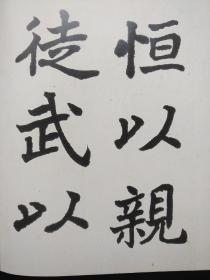 恒以親
徒武以